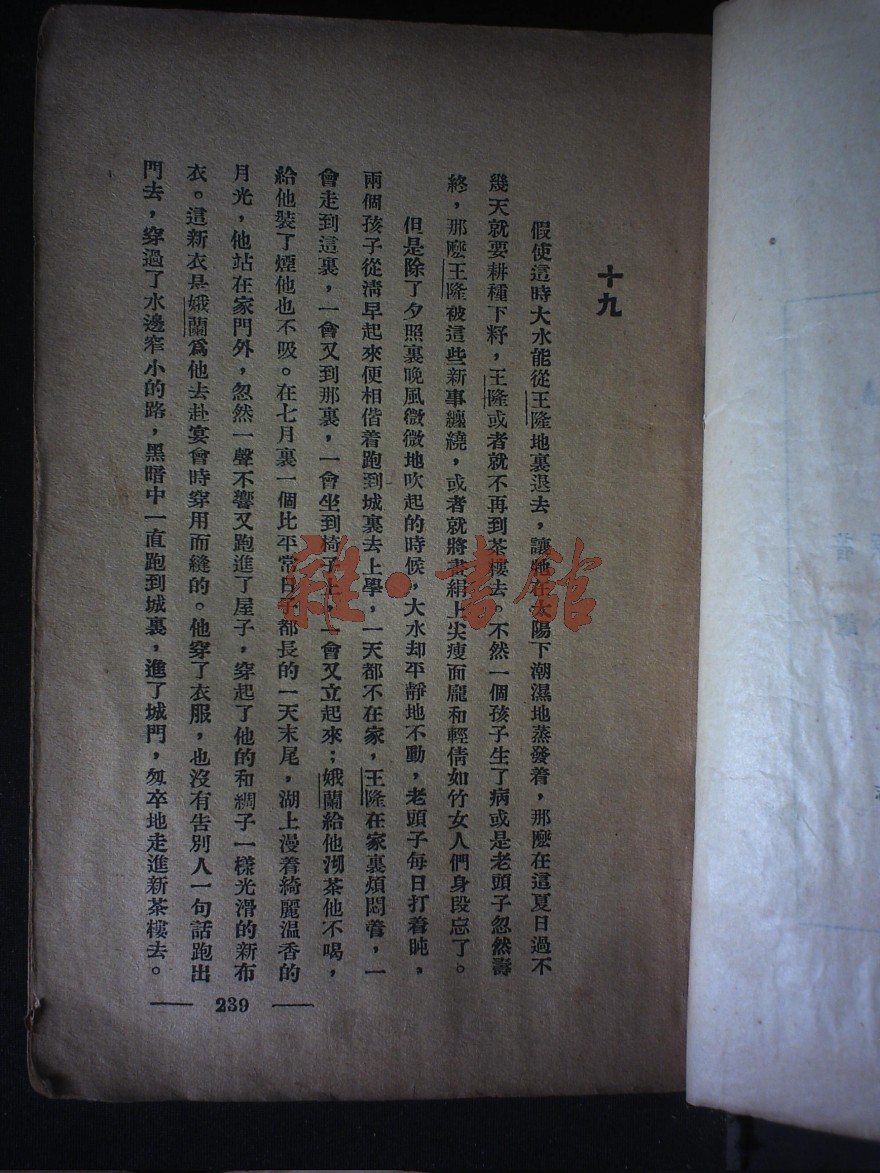 十九
假使這時大水能從王隆地裏退去，讓牠在太陽下潮濕地蒸發着，那麽在這夏日過不
幾天就要耕種下籽，王隆或者就不再到茶樓去。不然一個孩子生了病或是老頭子忽然壽
終，那麽王隆被這些新事纏繞，或者就將畫絹上尖瘦面龐和輕倩如竹女人們身段忘了。
但是除了夕照裏晚風微微地吹起的時候，大水却平靜地不動，老頭子每日打着盹，
兩個孩子從清早起來便相偕着跑到城裏去上學，一天都不在家，王隆在家裏煩悶着，一
會走到這裏，一會又到那裏，一會坐到椅子上，一會又立起來；娥蘭給他沏茶他不喝，
給他裝了煙他也不吸。在七月裏一個比平常日子都長的一天末尾，湖上漫着綺麗温香的
月光，他站在家門外，忽然一聲不響又跑進了屋子，穿起了他的和綢子一樣光滑的新布
衣。這新衣是娥蘭爲他去赴宴會時穿用而縫的。他穿了衣服，也沒有告別人一句話跑出
門去，穿過了水邊窄小的路，黑暗中一直跑到城裏，進了城門，匆卒地走進新茶樓去。
239
雜·書館